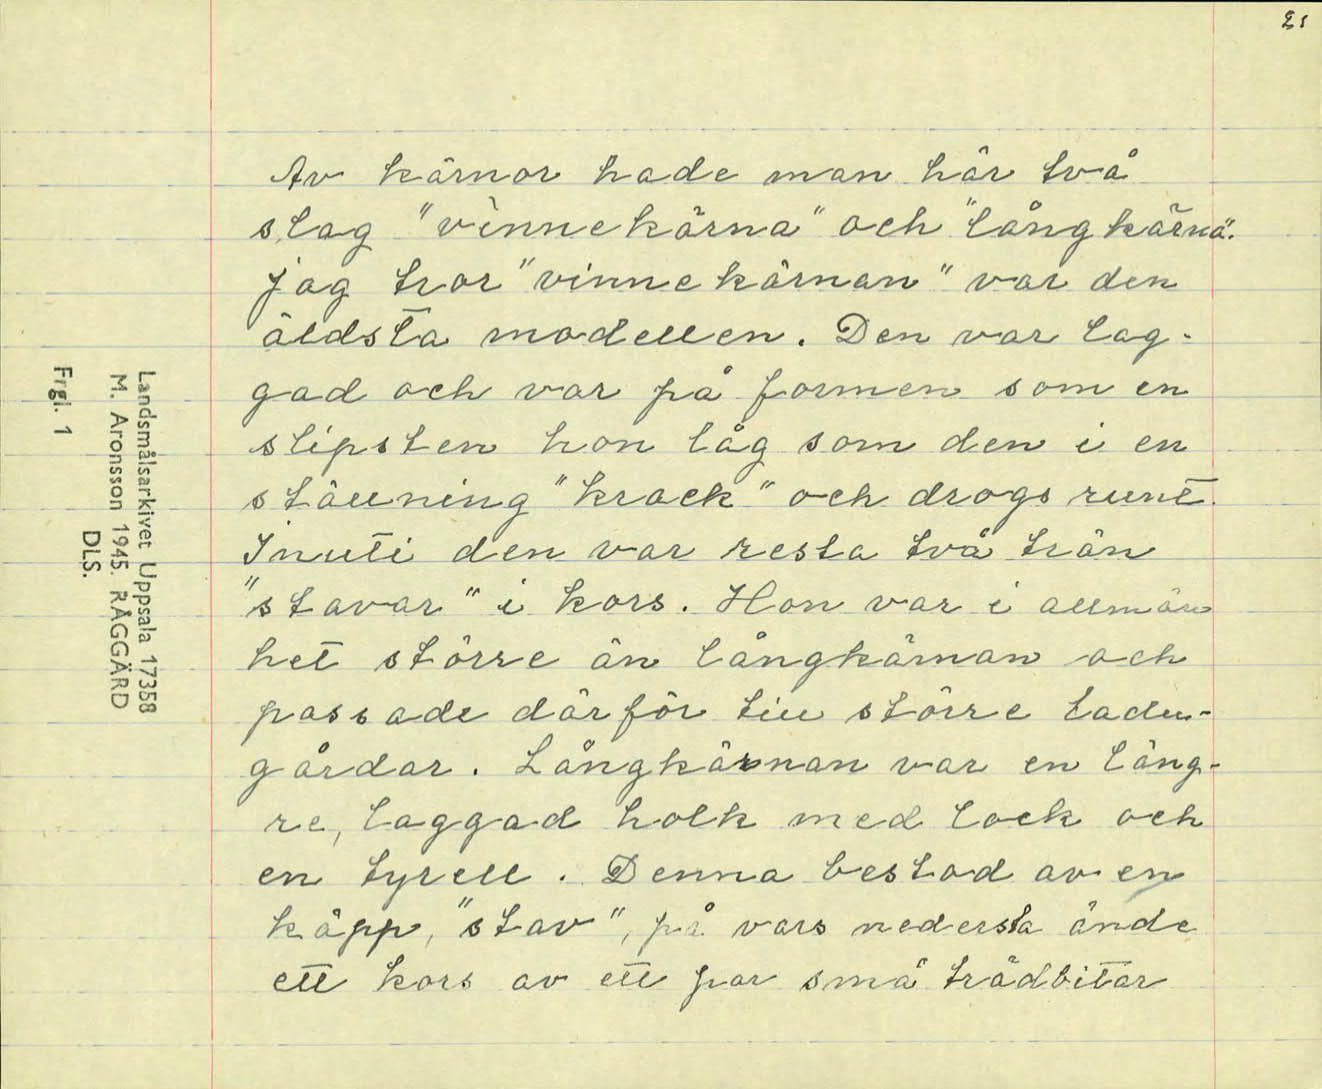 21
Av kärnor hade man här två
slag "vinnekärna" och "långkärna".
Jag tror "vinnekärnan" var den
äldsta modellen. Den var lag-
gad och var på formen som en
slipsten hon låg som den i en
ställning "krack" och drogs runt.
Inuti den var resta två trän
"stavar" i kors. Hon var i allmän
het större än långkärnan och
passade därför till större ladu-
gårdar. Långkärnan var en läng-
re, laggad holk med lock och
en tyrell. Denna bestod av en
käpp, "stav", på vars nedersta ände
ett kors av ett par små trädbitar
Landsmålsarkivet Uppsala 17358
M. Aronsson 1945. RÅGGÄRD
DLS.
Frgl. 1